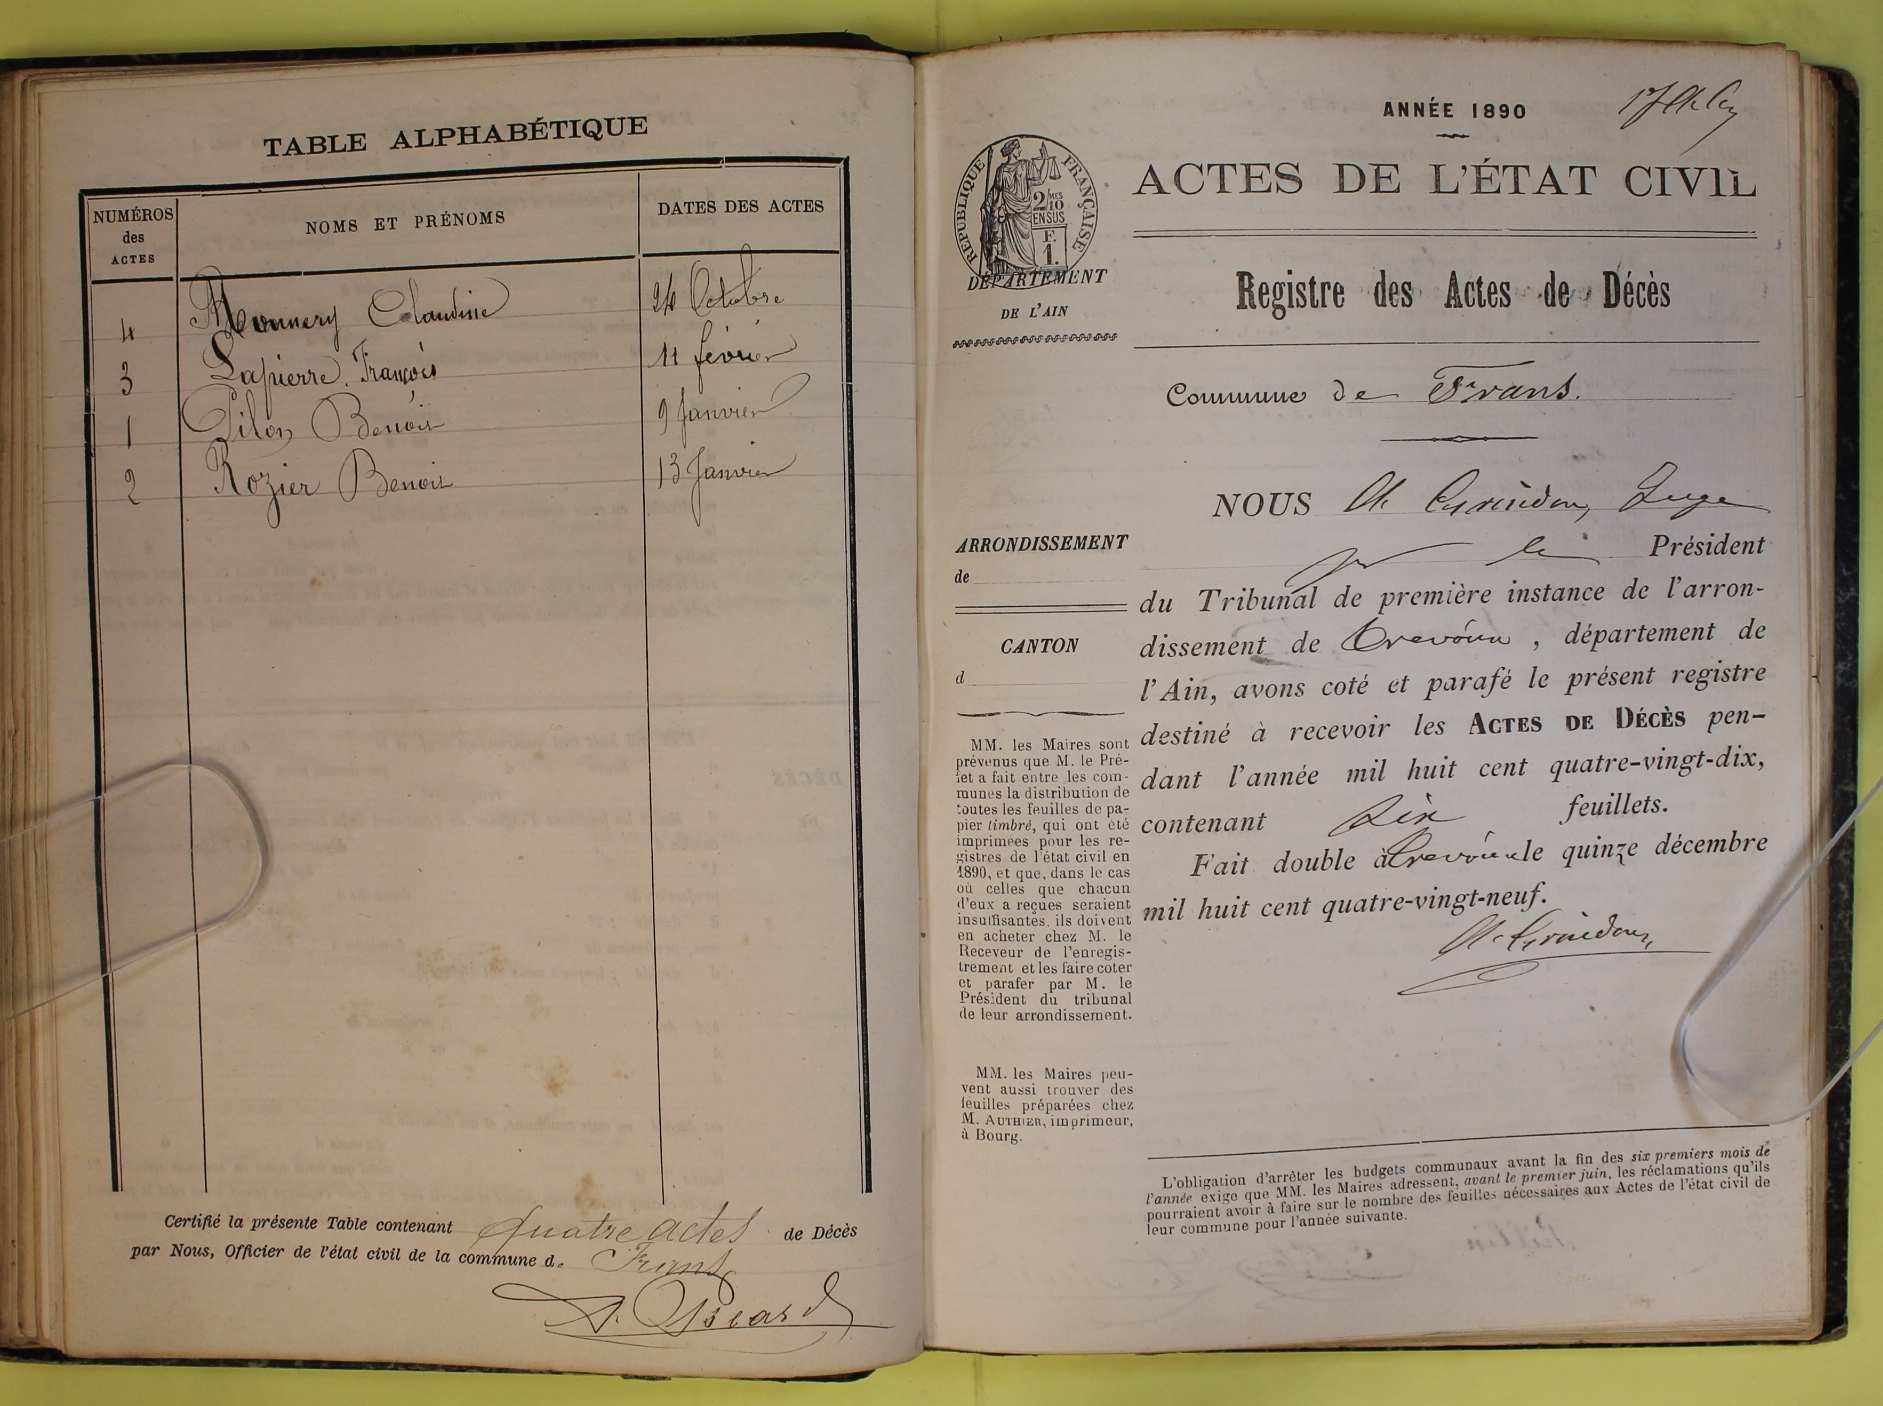 TABLE ALPHABÉTIQUE
NUMÉROS des ACTES
NOMS ET PRÉNOMS
DATES DES ACTES
4 Monnery Claudine 24 Octobre
3 Lapierre François 11 février
1 Pilon Benoit 9 Janvier
2 Rozier Benoit 13 Janvier
Certifié la présente Table contenant quatre actes de Décès
par Nous, Officier de l'état civil de la commune de Frans
ANNÉE 1890
RÉPUBLIQUE FRANÇAISE
2/10 MES
EN SUS
F.
1.
ACTES DE L'ÉTAT CIVIL
DÉPARTEMENT
DE L'AIN
Registre des Actes de Décès
Commune de Frans.
ARRONDISSEMENT
de
CANTON
d
MM. les Maires sont
prévenus que M. le Pré-
fet a fait entre les com-
munes la distribution de
toutes les feuilles de pa-
pier timbré, qui ont été
imprimées pour les re-
gistres de l'état civil en
1890, et que, dans le cas
où celles que chacun
d'eux a reçues seraient
insuffisantes, ils doivent
en acheter chez M. le
Receveur de l'enregis-
trement et les faire coter
et parafer par M. le
Président du tribunal
de leur arrondissement.
MM. les Maires peu-
vent aussi trouver des
feuilles préparées chez
M. AUTHIER, imprimeur,
à Bourg.
NOUS Juge
pr le Président
du Tribunal de première instance de l'arron-
dissement de Trévoux, département de
l'Ain, avons coté et parafé le présent registre
destiné à recevoir les ACTES DE DÉCÈS pen-
dant l'année mil huit cent quatre-vingt-dix,
contenant six feuillets.
Fait double à Trévoux le quinze décembre
mil huit cent quatre-vingt-neuf.
L'obligation d'arrêter les budgets communaux avant la fin des six premiers mois de
l'année exige que MM. les Maires adressent, avant le premier juin, les réclamations qu'ils
pourraient avoir à faire sur le nombre des feuilles nécessaires aux Actes de l'état civil de
leur commune pour l'année suivante.